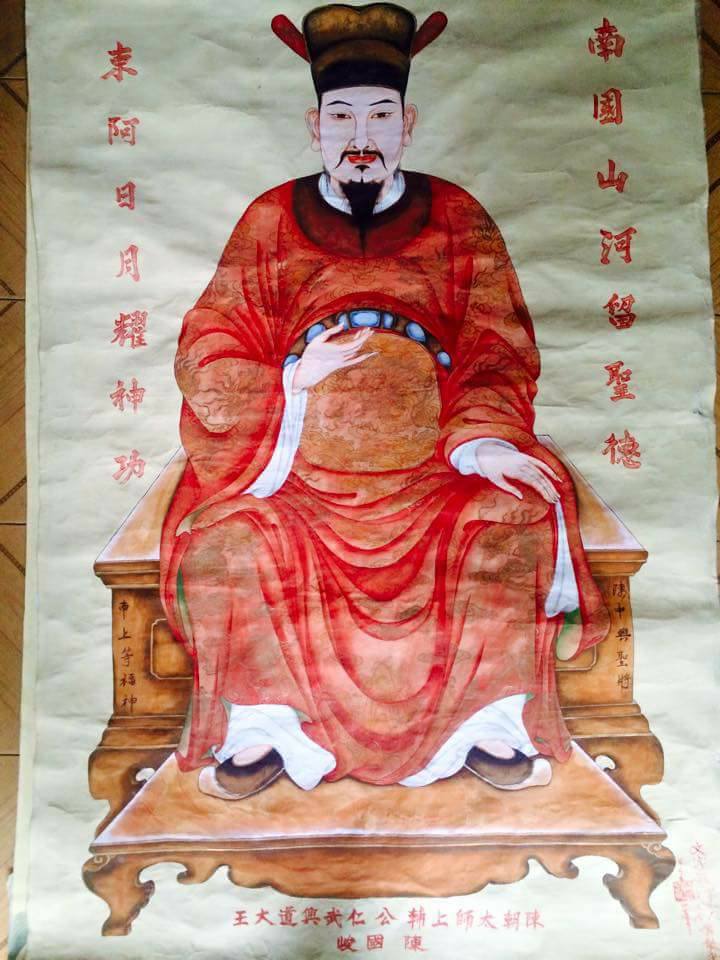 南國山河留聖德
東阿日月耀神功
陳中興聖將
上等福神
陳朝太師上輔公仁武興道大王
陳國峻